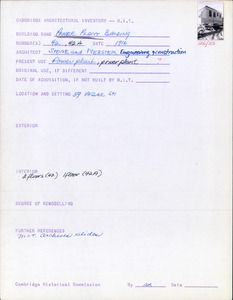 CAMBRIDGE ARCHITECTURAL INVENTORY -- M.I.T.
BUILDING NAME Power Plant Building
NUMBER(S) 42, 42A DATE 1916
ARCHITECT STONE and WEBSTER Engineering & Construction
PRESENT USE Power plant, power plant ?
ORIGINAL USE, IF DIFFERENT
DATE OF ACQUISITION, IF NOT BUILT BY M.I.T.
LOCATION AND SETTING 59 VASSAR St
EXTERIOR
INTERIOR
2 floors (42) 1 floor (42A)
DEGREE OF REMODELLING
FURTHER REFERENCES
M.I.T. Archives slides
Cambridge Historical Commission By Date